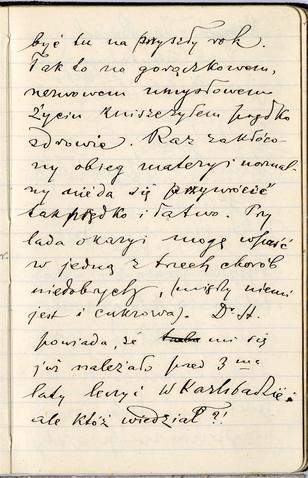 być tu na przyszły rok.
Tak to na gorączkowem,
nerwowem umysłowem
życiu zniszczyłem prędko
zdrowie. Raz zakłóco-
ny obieg materyi normal-
ny nie da się przywrócić
tak prędko i łatwo. Przy
lada okazyi mogę wpaść
w jedną z trzech chorób
niedobrych, (między niemi
jest i cukrowa). Dr. H.
powiada, że trzeba mi się
już należało przed 3 ma
laty leczyć w Karlsbadzie,
ale któż wiedział?!